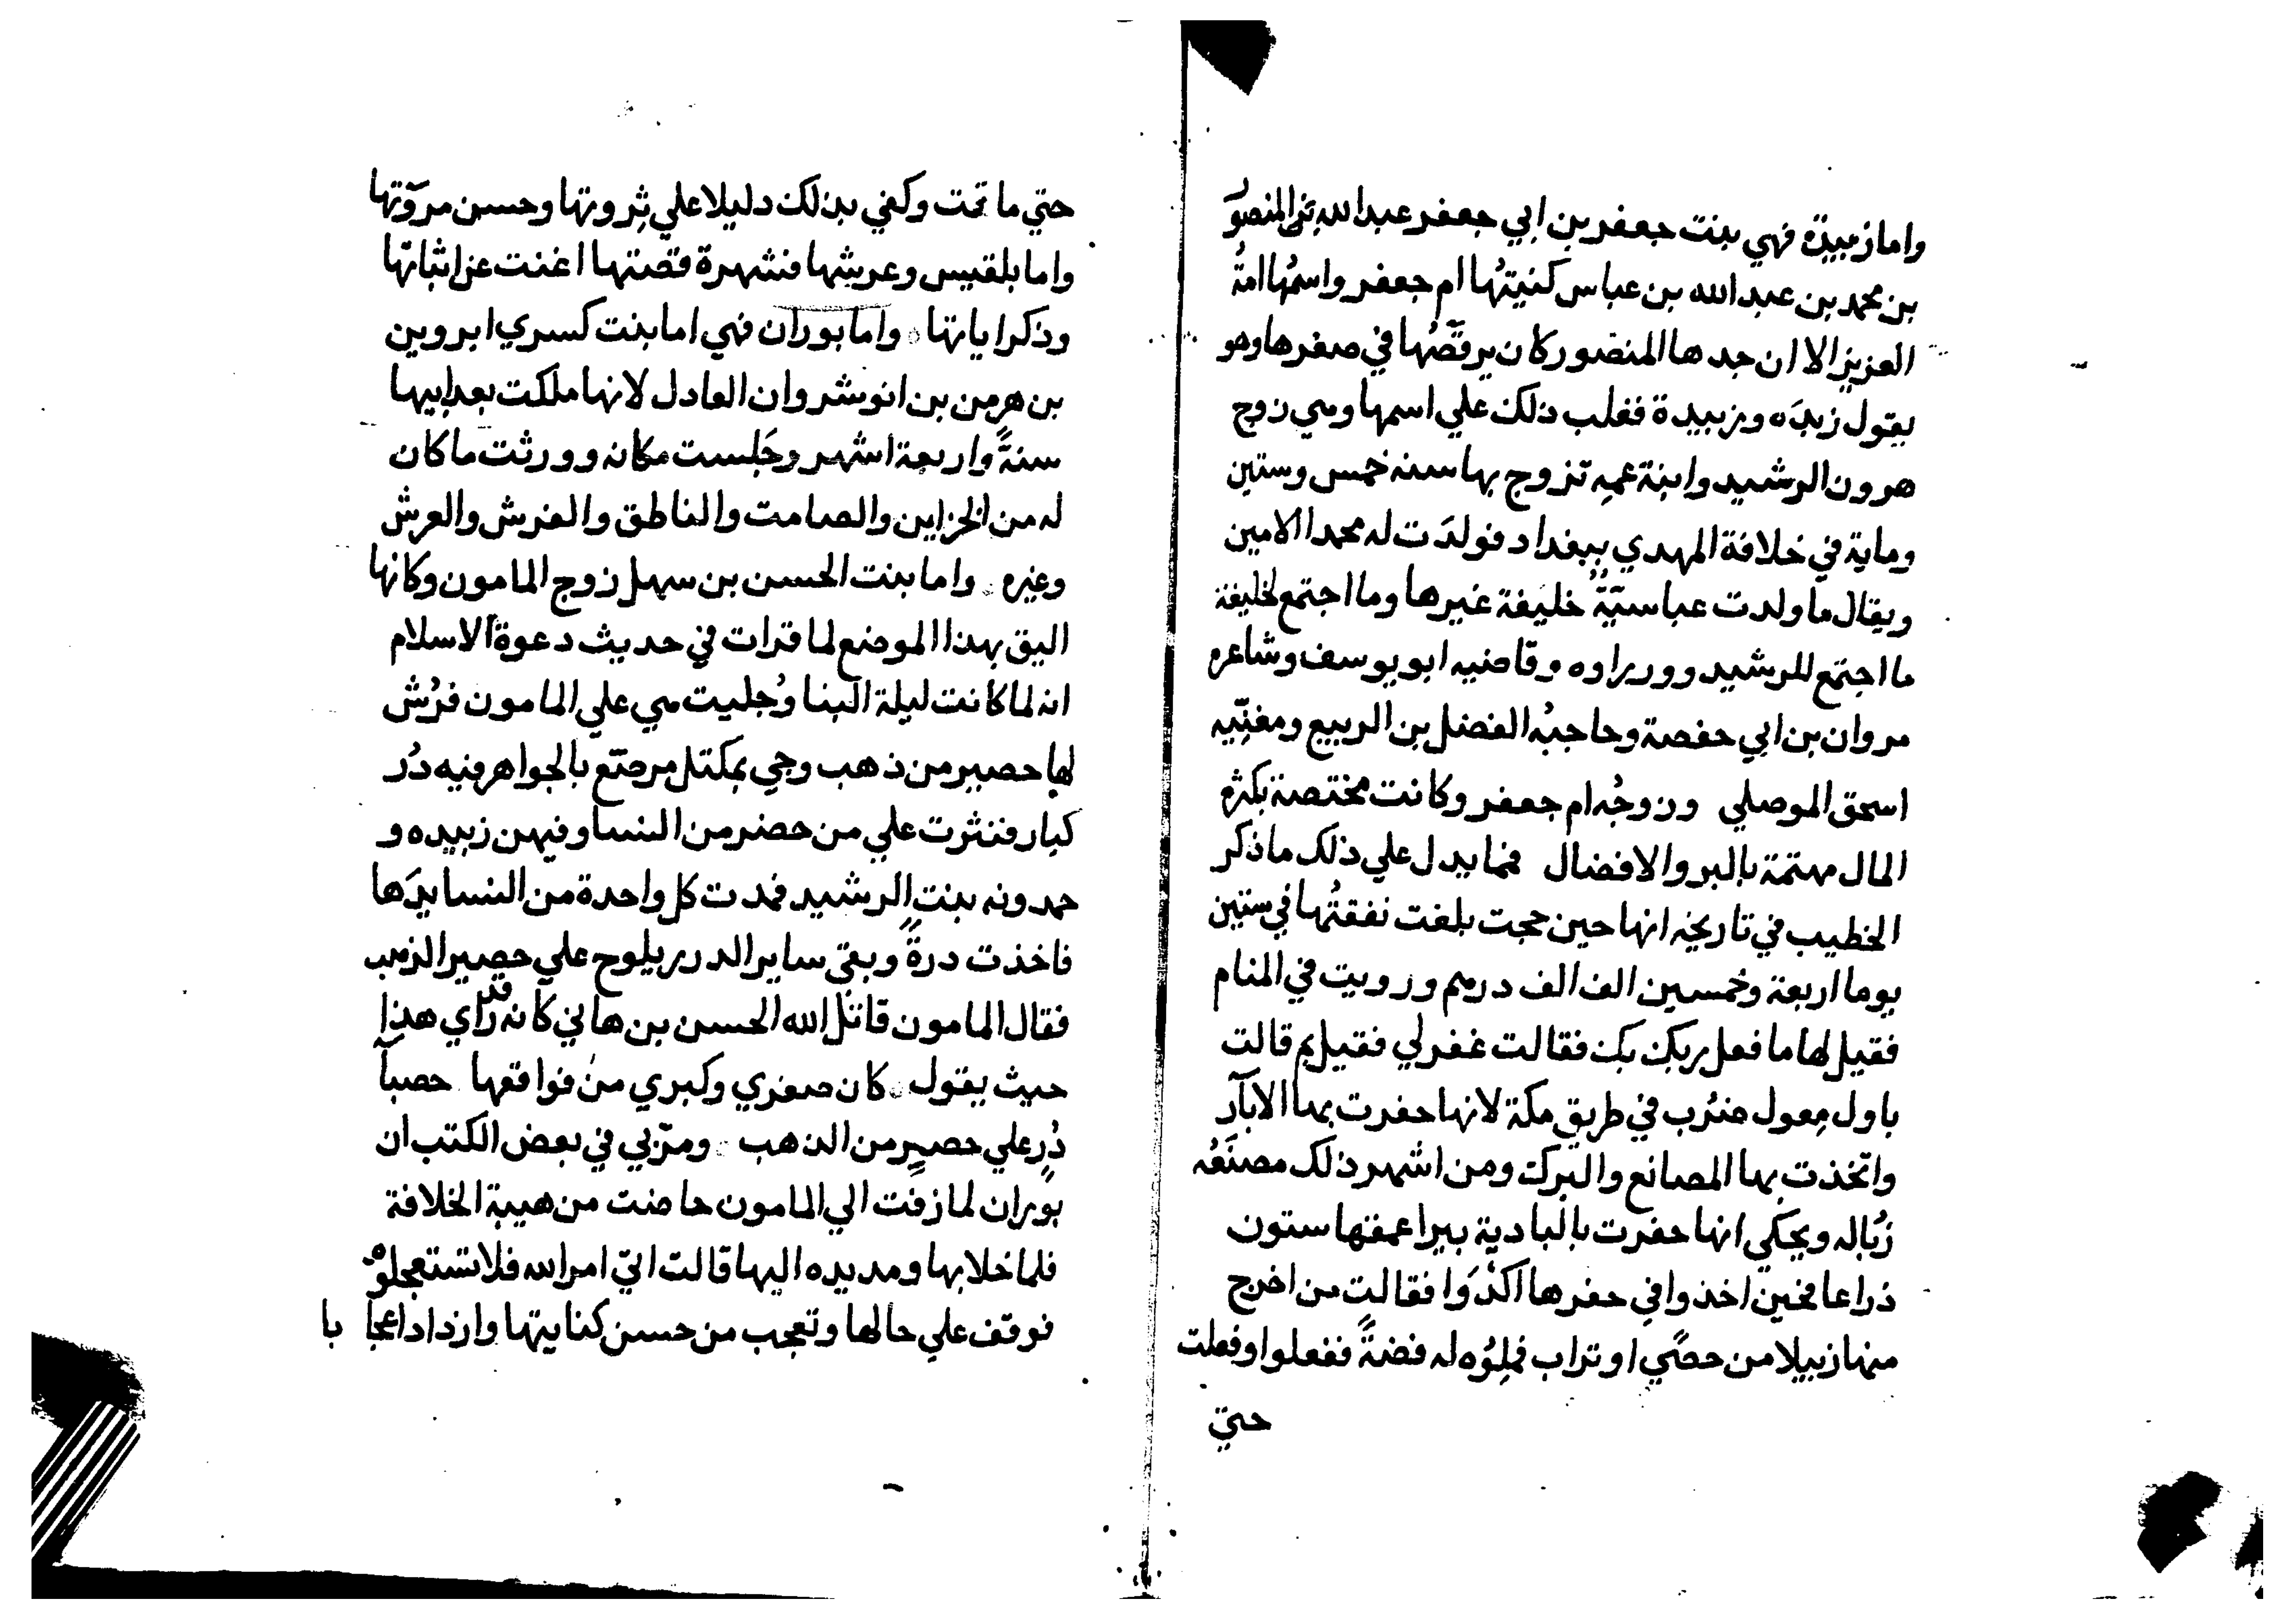 واما زبيدة فهي بنت جعفر بن ابي جعفر عبد الله بن المنصور
بن محمد بن عبد الله بن عباس كنيتُها ام جعفر واسمُها امةُ
العزيز الا ان جدها المنصور كان يرقّصُها في صغرها وهو
يقول زبدَه وزبيدة فغلب ذلك علي اسمها وهي زوج
هرون الرشيد وابنة عمه تزوج بها سنه خمس وستين
وماية في خلافة المهدي ببغداد فولدَت له محمدا الامين
ويقال ما ولدت عباسيّةٌ خليفة غيرها وما اجتمع لخليفة
ما اجتمع للرشيد ووزراوه وقاضيه ابو يوسف وشاعره
مروان بن ابي حفصة وحاجبُه الفضل بن الربيع ومغنّيه
اسحق الموصلي وزوجُه ام جعفر وكانت مختصة بكثرة
المال مهتمة بالبر والافضال فما يدل علي ذلك ما ذكر
الخطيب في تاريخه انها حين حجت بلغت نفقتُها في ستين
يوما اربعة وخمسين الف الف درهم ورويت في المنام
فقيل لها ما فعل ربك بك فقالت غفر لي فقيل بم قالت
باول مِعول ضُرب في طريق مكة لانها حفرت بها الآبار
واتخذت بها المصانع والبرك ومن اشهر ذلك مصنَعُه
زُباله ويحكي انها حفرت بالبادية بيرا عمقها ستون
ذراعا فحين اخذوا في حفرها اكدَوا فقالت من اخرج
منها زبيلا من حصًي او تراب فملؤه له فضةً ففعلوا وفعلت
حتي
حتي ما تمت وكفي بذلك دليلا علي ثروتها وحسن مروّتها
واما بلقيس وعرشها فشهرة قصتها اغنت عن اثباتها
وذكر اياتها واما بوران فهي اما بنت كسري ابرويز
بن هرمز بن انوشروان العادل لانها ملكت بعد ابيها
سنةً واربعة اشهر وجَلست مكانه وورثت ما كان
له من الخزاين والصامت والناطق والفرش والعرش
وغيره واما بنت الحسن بن سهل زوج المامون وكانها
اليق بهذا الموضع لما قرات في حديث دعوة الاسلام
انه لما كانت ليلة البنا وجُليت هي علي المامون فُرش
لها حصير من ذهب وجي بمكتل مرصّع بالجواهر فيه دُر
كبار فنثرت علي من حضر من النسا وفيهن زبيده و
حمدونه بنت الرشيد فمدت كل واحدة من النسا يدَها
فاخذت درةً وبقي ساير الدرر يلوح علي حصير الذهب
فقال المامون قاتل الله الحسن بن هاني كانه قد راي هذا
حيث يقول كان صغري وكبري من فواقعها حصباَ
دُرٍ علي حصيرٍ من الذهب ومرّ بي في بعض الكتب ان
بوران لما زفت الي المامون حاضت من هيبة الخلافة
فلما خلا بها ومد يده اليها قالت اتي امر الله فلا تستعجلوه
فوقف علي حالها وتعجب من حسن كنايتها وازداد اعجا با